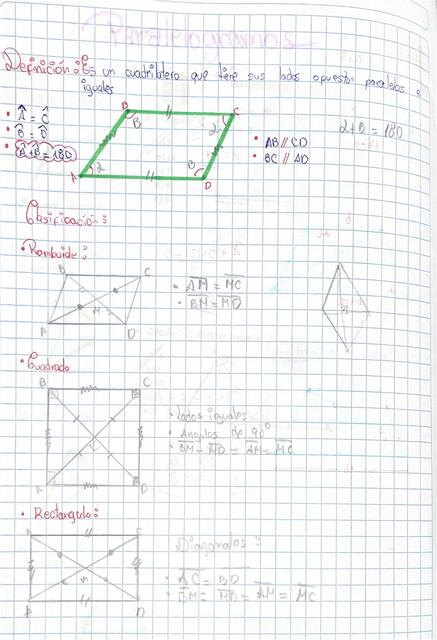 Paralelogramos
Definición: Es un cuadrilatero que tiene sus lados opuestos paralelos e
iguales
B C
B 2
• Â = Ĉ
• B̂ = D̂
• Â+B̂=180
• AB // CD
• BC // AD
2+B = 180
2 B
A D
Clasificación:
• Romboide:
B C
M
A D
• AM = MC
• BM = MD
• Cuadrado
B C
A D
• Lados iguales
• Angulos de 90°
• BM = MD = AM = MC
• Rectangulo:
B D
Diagonales:
• AC = BD
• BM = MD = AM = MC